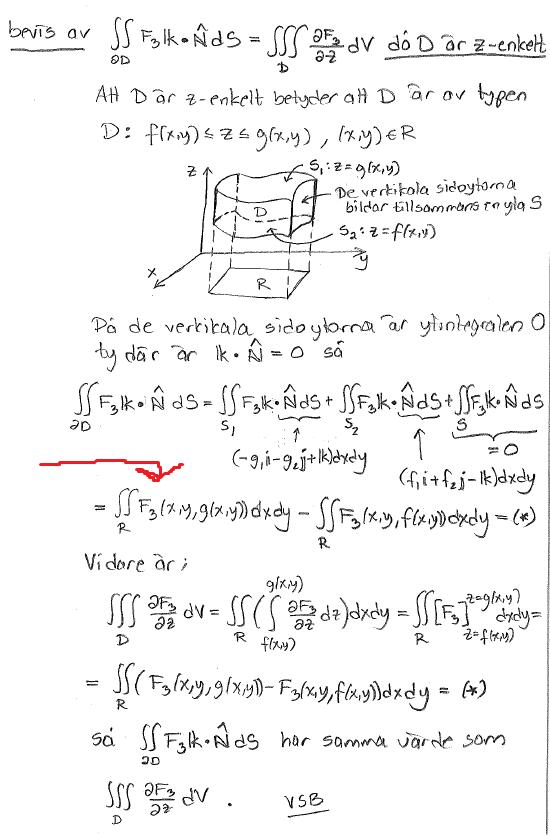 bevis av ∬_{∂D} F₃𝐤·N̂dS = ∭_D ∂F₃/∂z dV då D är z-enkelt
Att D är z-enkelt betyder att D är av typen
D: f(x,y) ≤ z ≤ g(x,y), (x,y) ∈ R
z
S₁: z = g(x,y)
De vertikala sidoytorna
bildar tillsammans en yta S
D
S₂: z = f(x,y)
x
y
R
På de vertikala sidoytorna är ytintegralen 0
ty där är 𝐤·N̂ = 0 så
∬_{∂D} F₃𝐤·N̂ dS = ∬_{S₁} F₃𝐤·N̂dS + ∬_{S₂} F₃𝐤·N̂dS + ∬_S F₃𝐤·N̂dS
= 0
(-g₁i-g₂j+𝐤)dxdy
(f₁i+f₂j-𝐤)dxdy
= ∬_R F₃(x,y,g(x,y))dxdy - ∬_R F₃(x,y,f(x,y))dxdy = (*)
Vidare är;
∭_D ∂F₃/∂z dV = ∬_R (∫_{f(x,y)}^{g(x,y)} ∂F₃/∂z dz)dxdy = ∬_R [F₃]_{z=f(x,y)}^{z=g(x,y)} dxdy =
= ∬_R (F₃(x,y,g(x,y)) - F₃(x,y,f(x,y))dxdy = (*)
så ∬_{∂D} F₃𝐤·N̂dS har samma värde som
∭_D ∂F₃/∂z dV. VSB